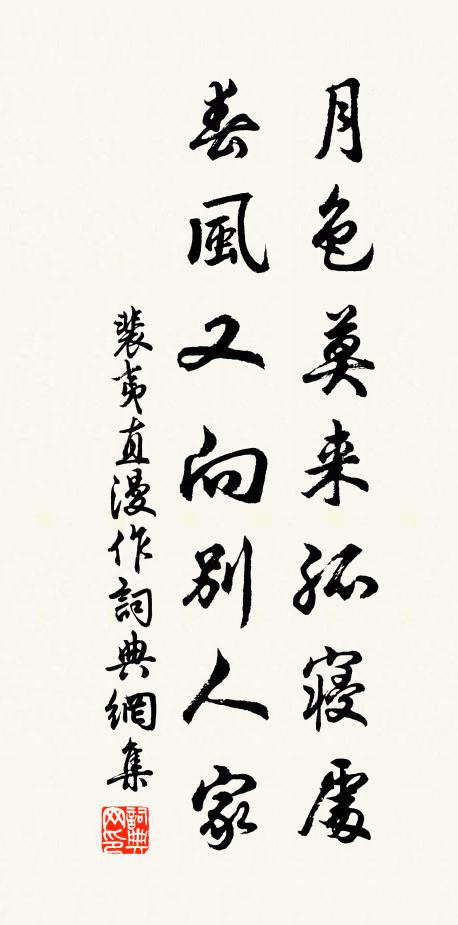 月色莫来孤寝處
春風又向别人家
裴夷直漫作詞典網集
詞典網印